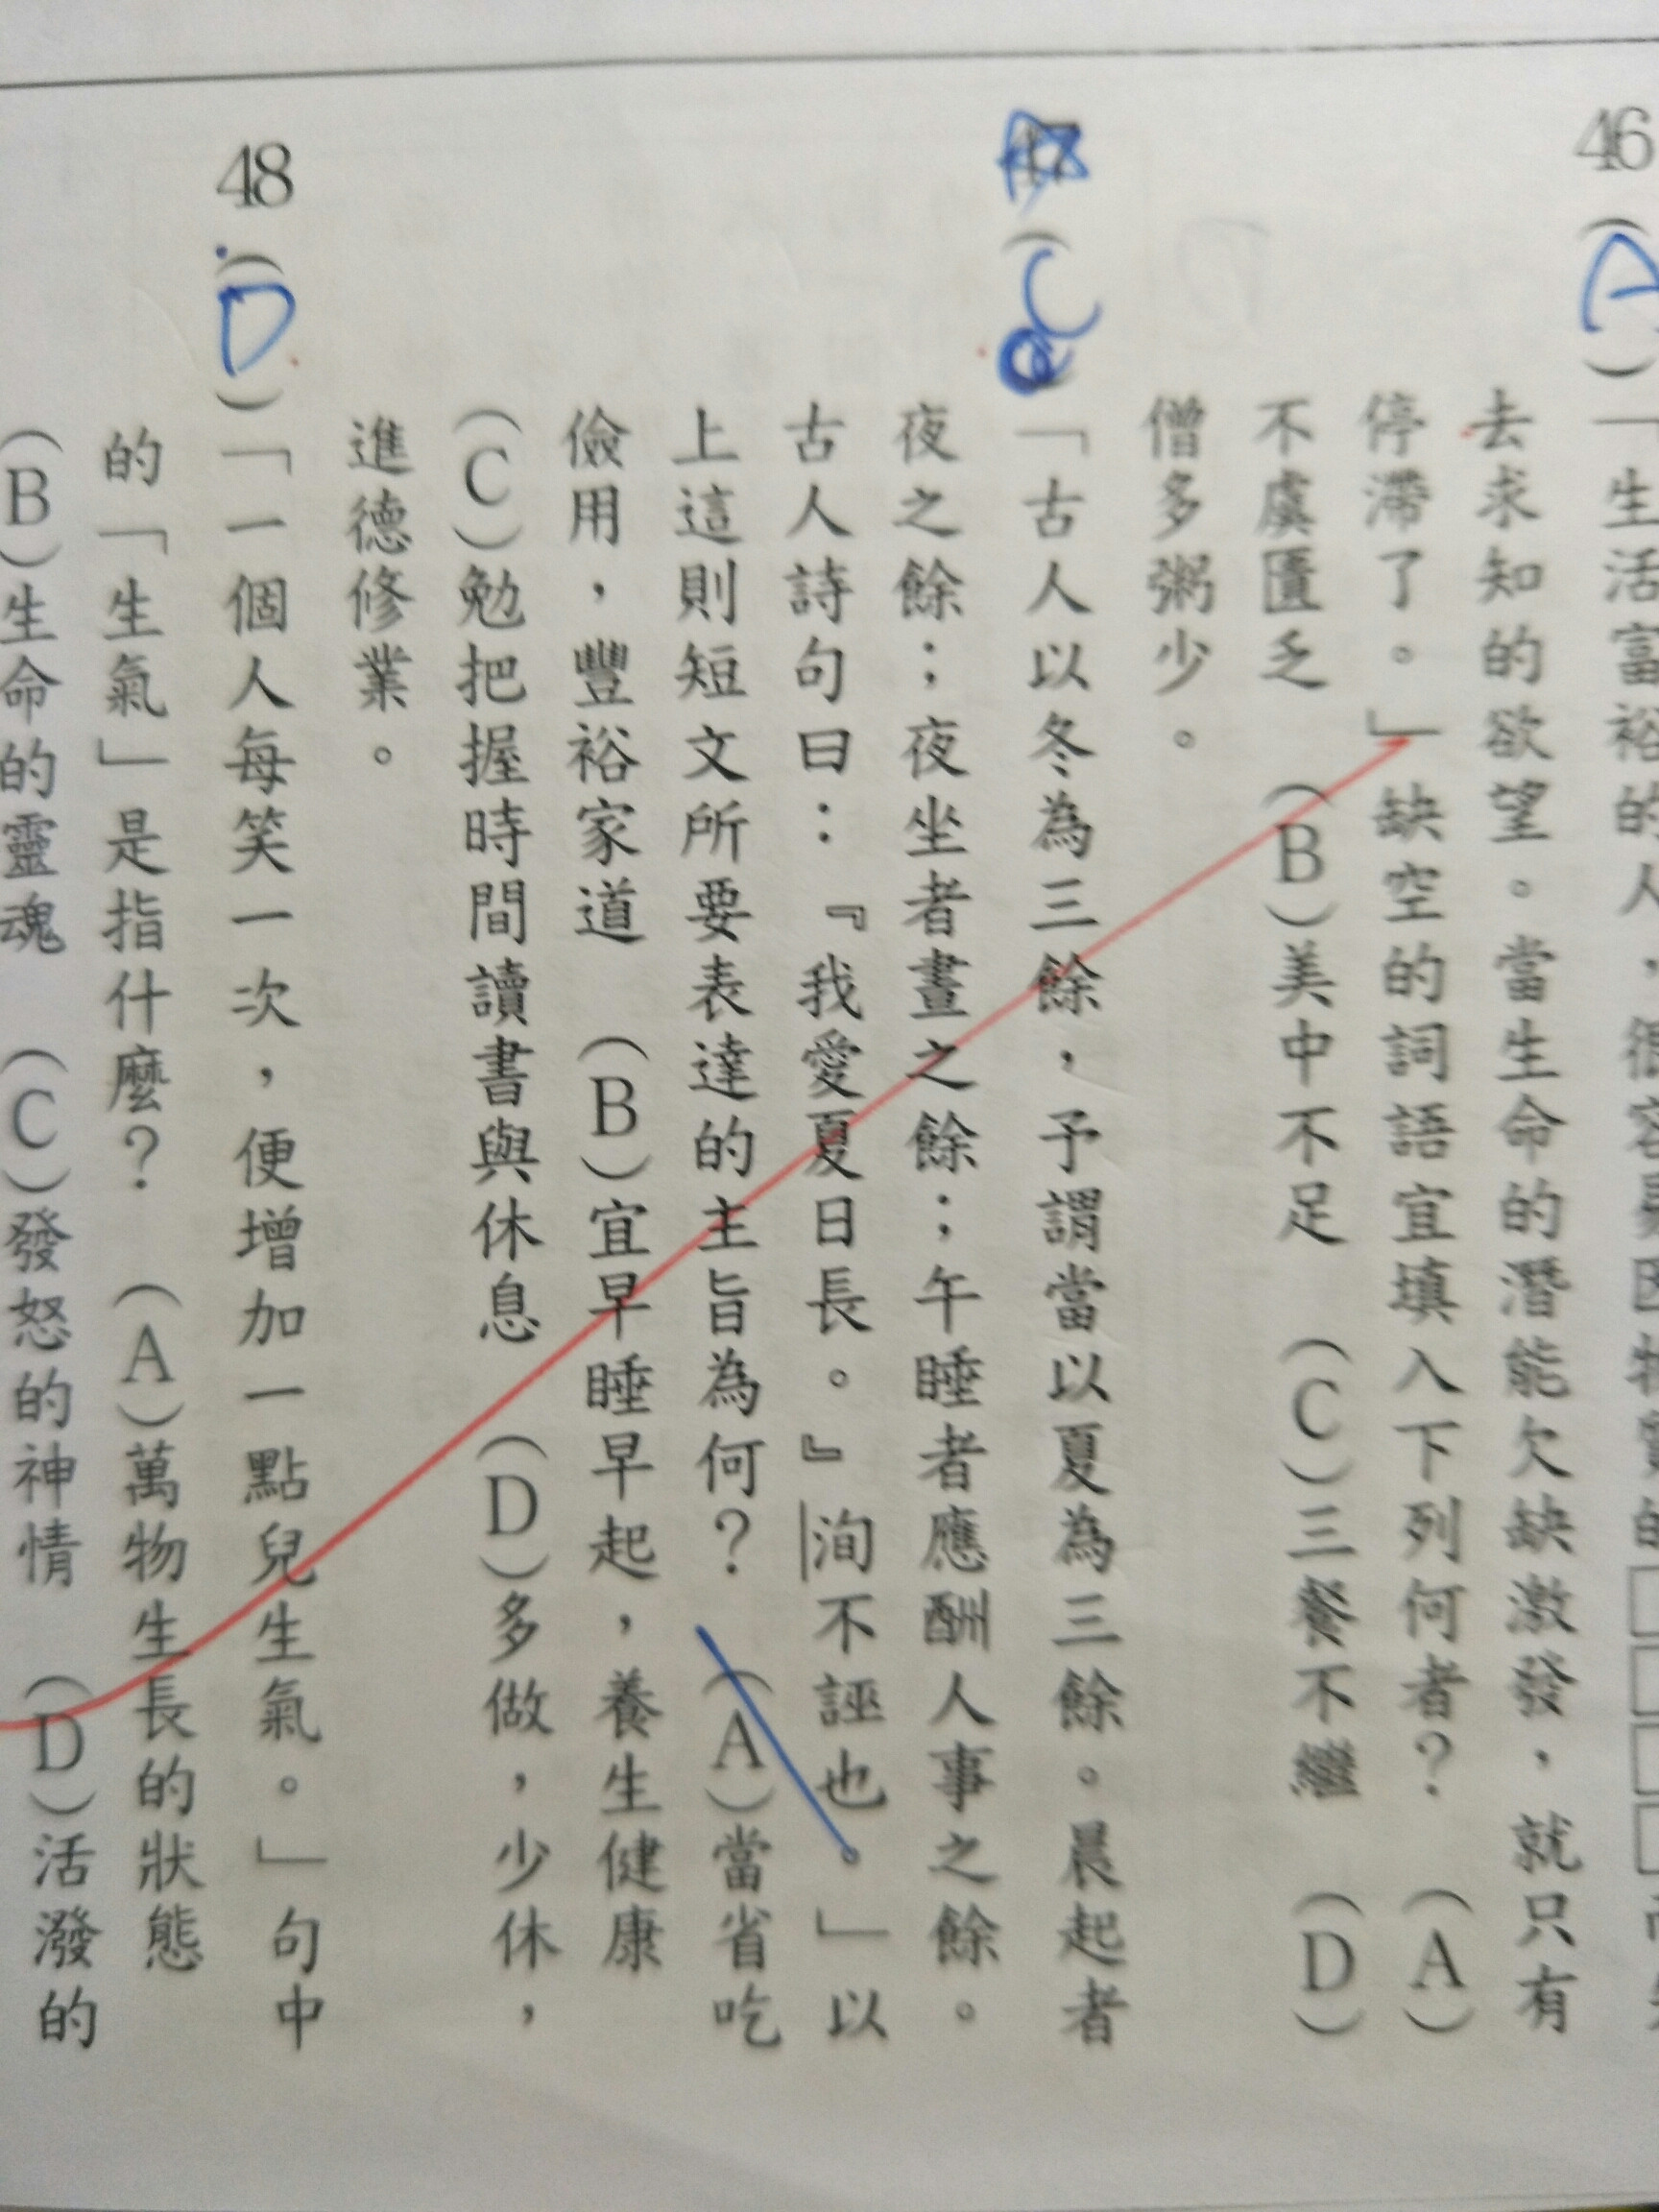 46(A)「生活富裕的人，很容易因物質的□□□□而失
去求知的欲望。當生命的潛能欠缺激發，就只有
停滯了。」缺空的詞語宜填入下列何者？ (A)
不虞匱乏 (B)美中不足 (C)三餐不繼 (D)
僧多粥少。
(C)「古人以冬為三餘，予謂當以夏為三餘。晨起者
夜之餘；夜坐者晝之餘；午睡者應酬人事之餘。
古人詩句曰：『我愛夏日長。』洵不誣也。」以
上這則短文所要表達的主旨為何？ (A)當省吃
儉用，豐裕家道 (B)宜早睡早起，養生健康
(C)勉把握時間讀書與休息 (D)多做，少休，
進德修業。
48(D)「一個人每笑一次，便增加一點兒生氣。」句中
的「生氣」是指什麼？ (A)萬物生長的狀態
(B)生命的靈魂 (C)發怒的神情 (D)活潑的